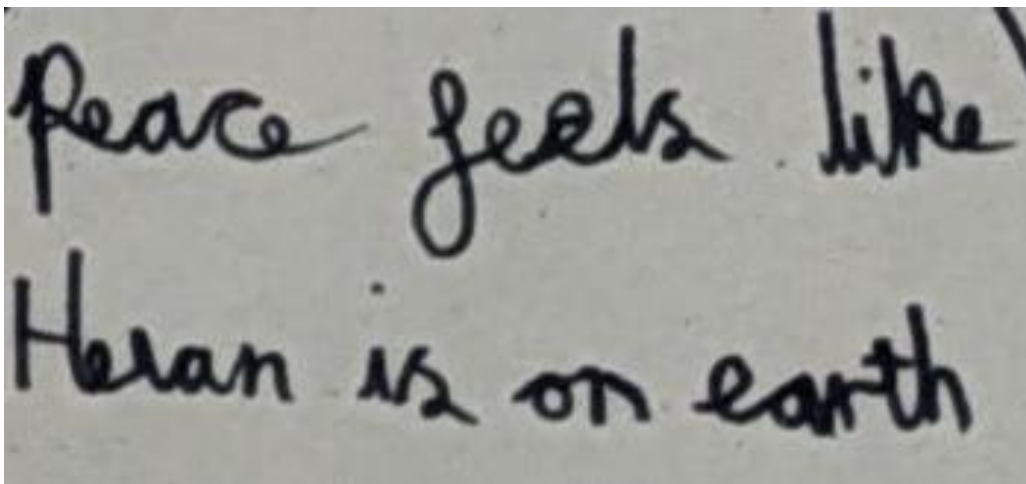 Peace feels like
Heran is on earth